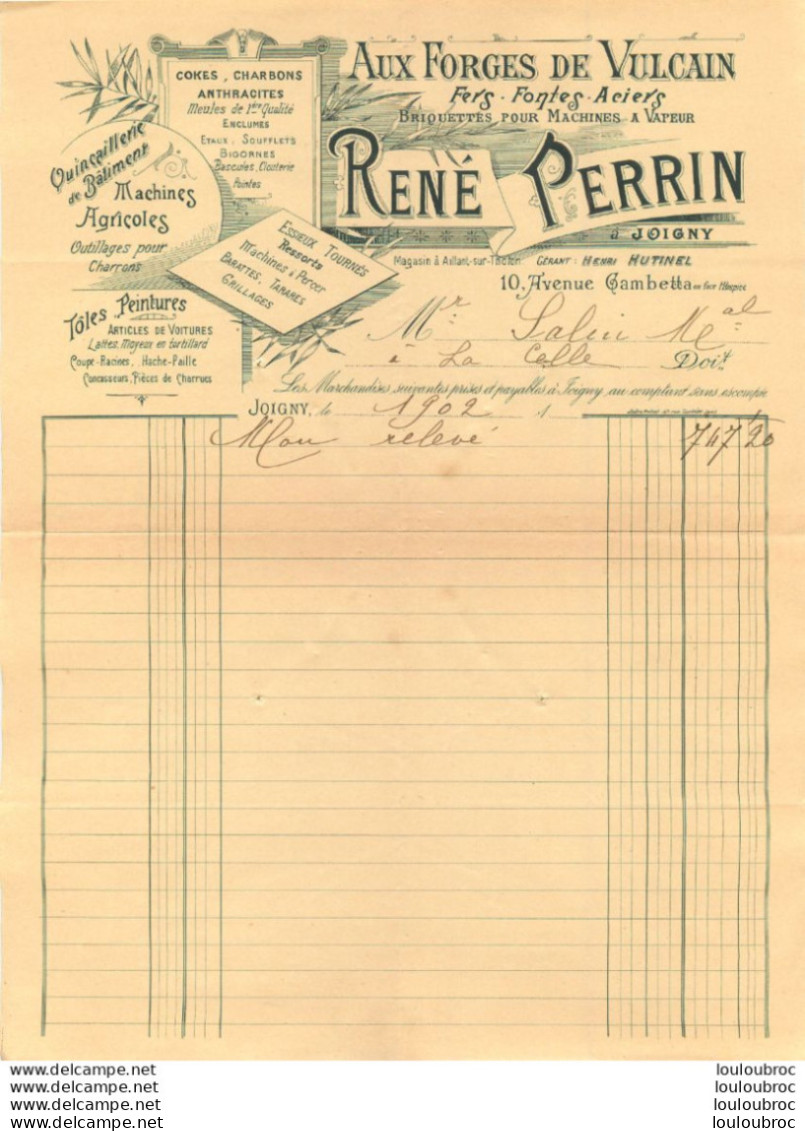 AUX FORGES DE VULCAIN
Fers - Fontes - Aciers
BRIQUETTES POUR MACHINES A VAPEUR
RENÉ PERRIN
à JOIGNY
Magasin à Aillant-sur-Tholon GÉRANT : HENRI HUTINEL
10, Avenue Gambetta en face l'Hospice
COKES, CHARBONS
ANTHRACITES
Meules de 1ère Qualité
ENCLUMES
ETAUX, SOUFFLETS
BIGORNES
Bascules, Clouterie
Pointes
Quincaillerie
de Bâtiment
Machines
Agricoles
Outillages pour
Charrons
ESSIEUX TOURNÉS
Ressorts
Machines à Percer
BARATTES, TARARES
GRILLAGES
Tôles Peintures
ARTICLES DE VOITURES
Lattes, Moyeux en tortillard
Coupe-Racines, Hache-Paille
Concasseurs, Pièces de Charrues
Mr Salin Mal
à La Celle Doit
Les Marchandises suivantes prises et payables à Joigny au comptant sans escompte
JOIGNY, le 1902 1
Mon relevé 747,20
www.delcampe.net louloubroc
www.delcampe.net louloubroc
www.delcampe.net louloubroc
www.delcampe.net louloubroc